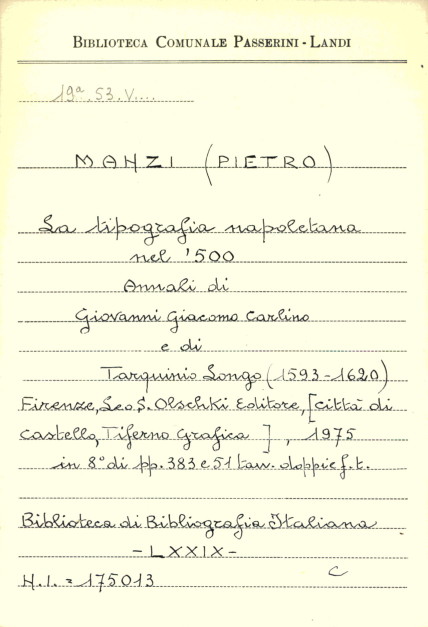 BIBLIOTECA COMUNALE PASSERINI - LANDI
19ª.53.V....
MANZI (PIETRO)
La tipografia napoletana
nel '500
Annali di
Giovanni Giacomo Carlino
e di
Tarquinio Longo (1593-1620)
Firenze, Leo S. Olschki Editore, [città di
castello, Tiferno Grafica ], 1975
in 8° di pp. 383 e 51 tav. doppie f.t.
Biblioteca di Bibliografia Italiana
- LXXIX -
N.I. = 175013
C